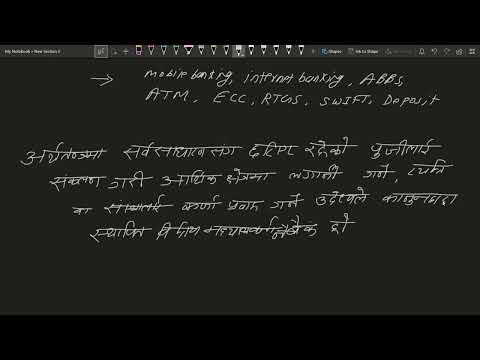 My Notebook • New Section 2
Ink to Shape
Share
→ mobile banking, internet banking, ABBS,
ATM, ECC, RTGS, SWIFT, Deposit
अर्थतन्त्रमा सर्वसाधारण संग छरिएर रहेको पुजीलाई
संकलन गरी आर्थिक क्षेत्रमा लगानी गर्ने,
वा कर्जा प्रवाह गर्ने उद्देश्यले कानुनद्वारा
स्थापित बैंक हो